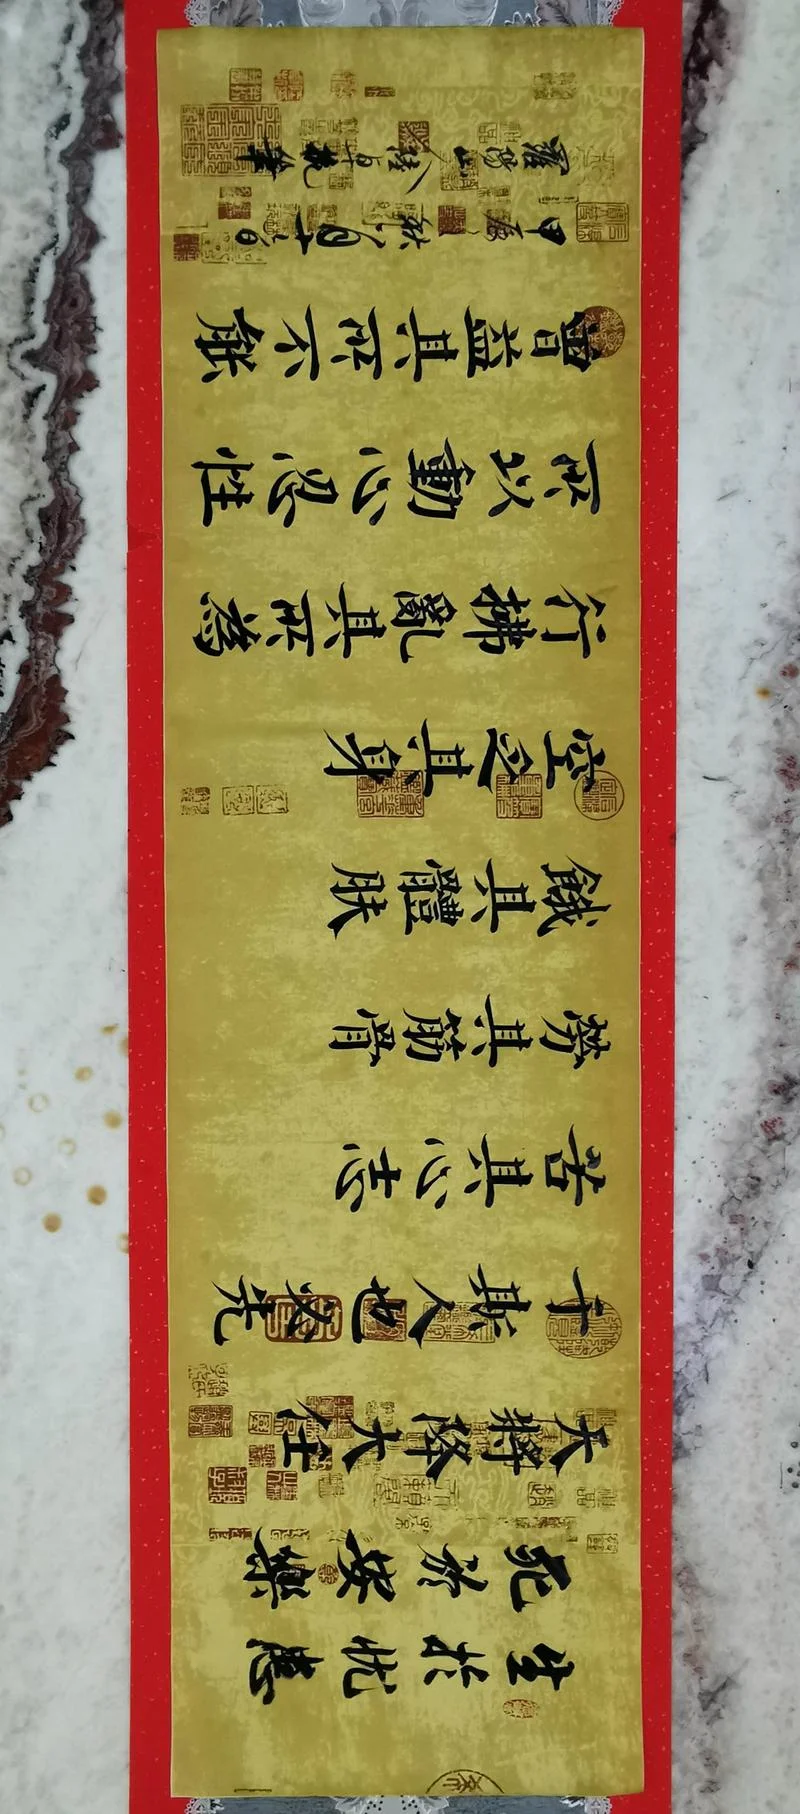 生於忧患
死於安樂
天將降大任
于斯人也必先
苦其心志
勞其筋骨
餓其體肤
空乏其身
行拂亂其所為
所以動心忍性
曾益其所不能
甲辰秋月十二日
羅陽山人執筆